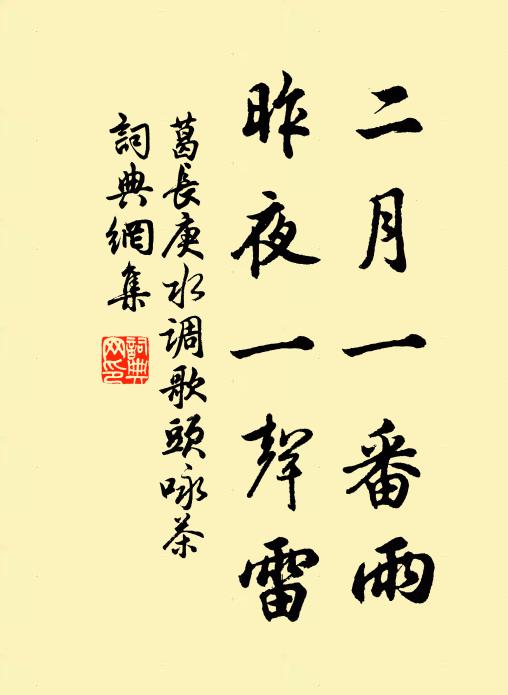 二月一番雨
昨夜一聲雷
葛長庚水调歌頭咏茶
詞典網集
詞典网印